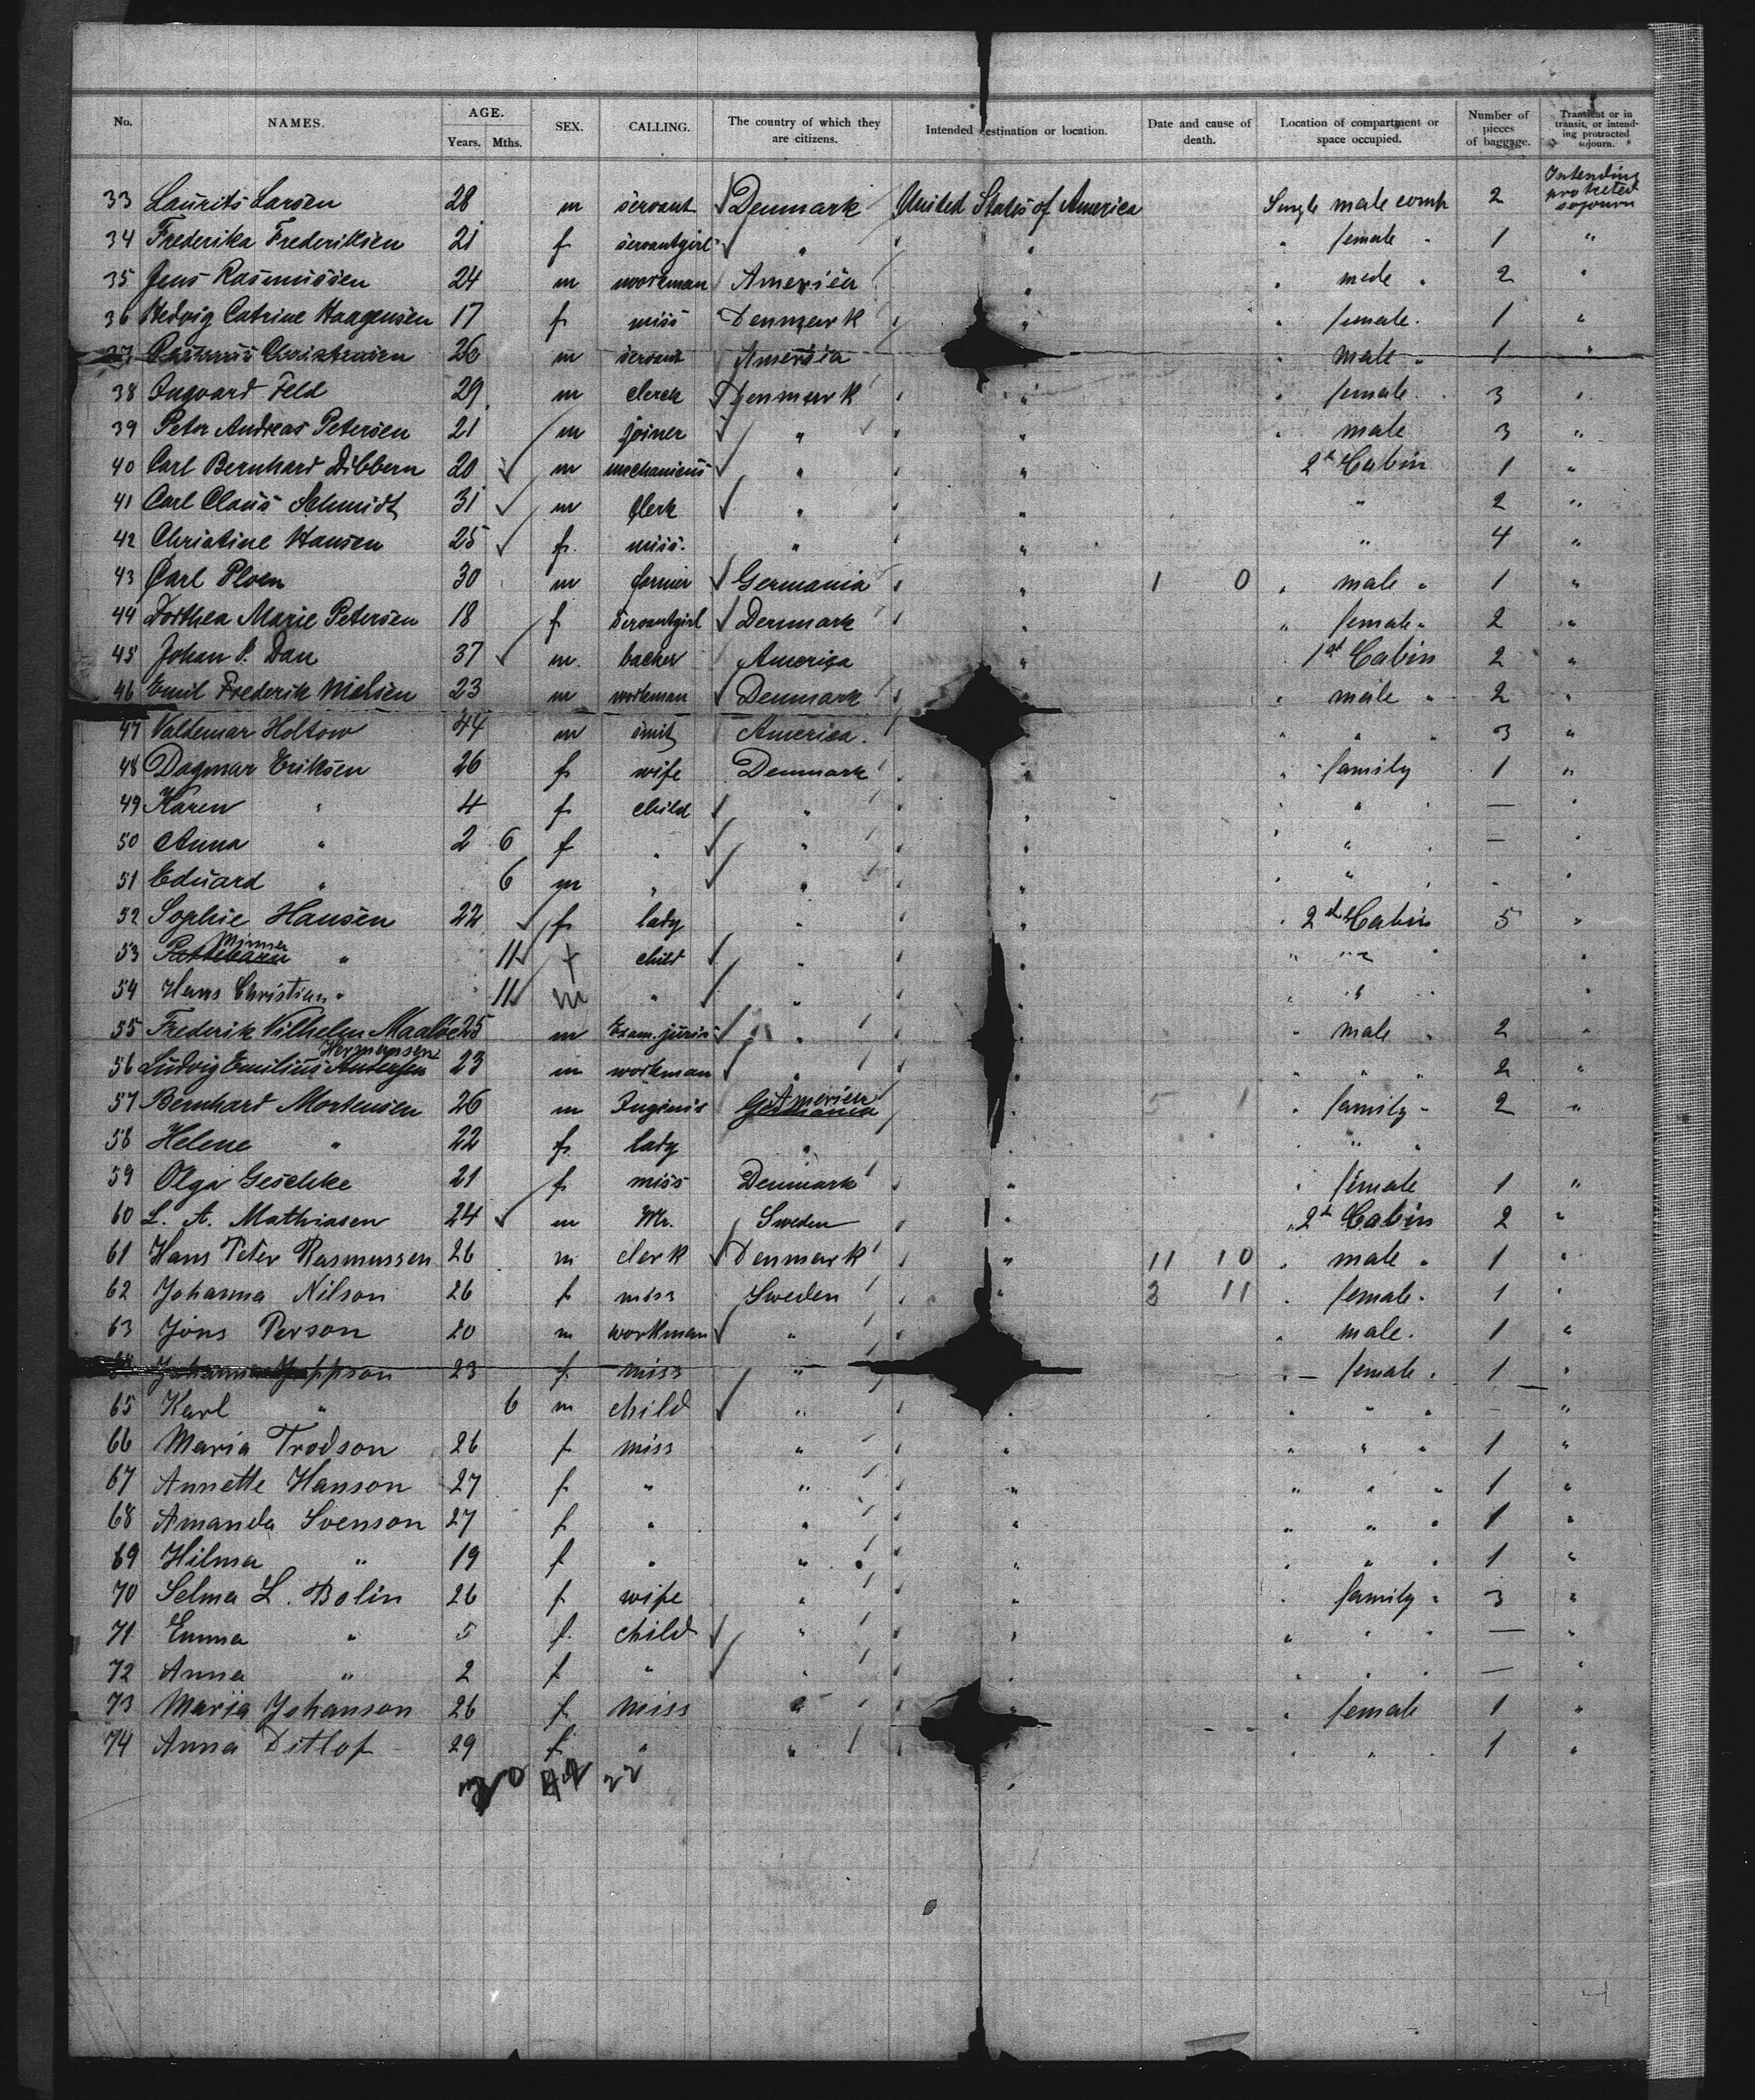 No. NAMES. AGE. Years. Mths. SEX. CALLING. The country of which they are citizens. Intended destination or location. Date and cause of death. Location of compartment or space occupied. Number of pieces of baggage. Transient or in transit, or intending protracted sojourn.
33 Laurits Larsen 28 m servant Denmark United States of America Single male comp 2 Intending protrcted sojourn
34 Frederika Frederiksen 21 f servantgirl " " " female " 1 "
35 Jens Rasmussen 24 m workman America " " male " 2 "
36 Hedvig Catrine Haagensen 17 f miss Denmark " " female " 1 "
37 Christensen 26 m servant America " male " 1 "
38 Ingvard Feld 29 m clerck Denmark " " female " 3 "
39 Peter Andreas Petersen 21 m joiner " " " male 3 "
40 Carl Bernhard Dibbern 20 m mechanicus " " 2d Cabin 1 "
41 Carl Claus Schmidt 31 m clerk " " " 2 "
42 Christine Hansen 25 f miss. " " " 4 "
43 Carl Ploen 30 m Germania " 1 0 " male " 1 "
44 Dorthea Marie Petersen 18 f servantgirl Denmark " " female " 2 "
45 Johan P. Dau 37 m. backer America " 1st Cabin 2 "
46 Emil Frederik Nielsen 23 m workman Denmark " male " 2 "
47 Valdemar Holtow 44 m smit America. " " " 3 "
48 Dagmar Eriksen 26 f wife Denmark " " family 1 "
49 Karen " 4 f child " " " " — "
50 Anna " 2 6 f " " " " " — "
51 Eduard " 6 m " " " " " - "
52 Sophie Hansen 22 f lady " " 2d Cabin 5 "
53 Minner " 11 f child " " " " "
54 Hans Christian " 11 m " " " " " "
55 Frederik Vilhelm Maaløe 25 m Exam. juris " " " male " 2 "
56 Ludvig Emilius Andersen Hermansen 23 m workman " " " " " 2 "
57 Bernhard Mortensen 26 m Ingenis Germania America " 5 1 " family " 2 "
58 Helene " 22 f lady " " " "
59 Olga Geschke 21 f miss Denmark " " female 1 "
60 L. A. Mathiasen 24 m Mr. Sweden " " 2d Cabin 2 "
61 Hans Peter Rasmussen 26 m clerk Denmark " 11 10 " male " 1 "
62 Johanna Nilson 26 f miss Sweden " 3 11 " female " 1 "
63 Jöns Person 20 m workman " " male. 1 "
Johanna Jeppson 23 f miss " " female " 1 "
65 Karl " 6 m child " " " " " - "
66 Maria Trodson 26 f miss " " " " " 1 "
67 Annette Hanson 27 f " " " " " " 1 "
68 Amanda Svenson 27 f " " " " " " 1 "
69 Hilma " 19 f " " " " " " 1 "
70 Selma L. Bolin 26 f wife " " " family " 3 "
71 Emma " 5 f child " " " " " — "
72 Anna " 2 f " " " " " " — "
73 Maria Johanson 26 f miss " " " female 1 "
74 Anna Ditlof 29 f " " " " " 1 "
22